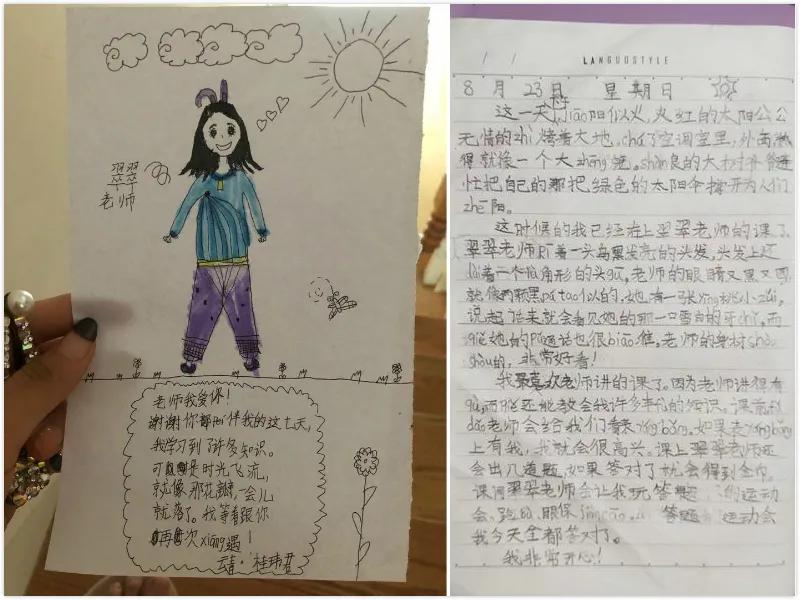 翠翠
老师
老师我爱你！
谢谢你都pei伴我的这七天，
我学习到了许多知识。
可是时光飞流，
就像那花瓣，一会儿
就落了。我等着跟你
再次xiāng遇！
桂玮君
LANGUOSTYLE
8 月 23 日 星期日
这一天，jiāo阳似火，火红的太阳公公
无情的zhì烤着大地。chú了空调室里，外面热
得就像一个大zhēng笼。shàn良的大树
忙把自己的那把绿色的太阳伞撑开为人们
zhē阳。
这时候的我已经在上翠翠老师的课了。
翠翠老师pī着一头乌黑发亮的头发，头发上还
dài着一个角形的头gū，老师的眼睛又黑又圆
就像两颗黑pútao似的，她有一张yīng桃小zuǐ，
说起话来就会看见她的那一口雪白的牙chǐ，而
且她的pǔ通话也很biāo准。老师的身材
的，非常好看！
我最喜欢老师讲的课了。因为老师讲得有
而且还能教会我许多丰fù的知识。课前
老师会给我们看表yángbǎng，如果表yángbǎng
上有我，我就会很高兴。课上翠翠老师还
会出几道题，如果答对了就会得到金币。
课间翠翠老师会让我玩答题 的运动
会、跑 、眼保 答题 运动会
我今天全都答对了。
我非常开心！